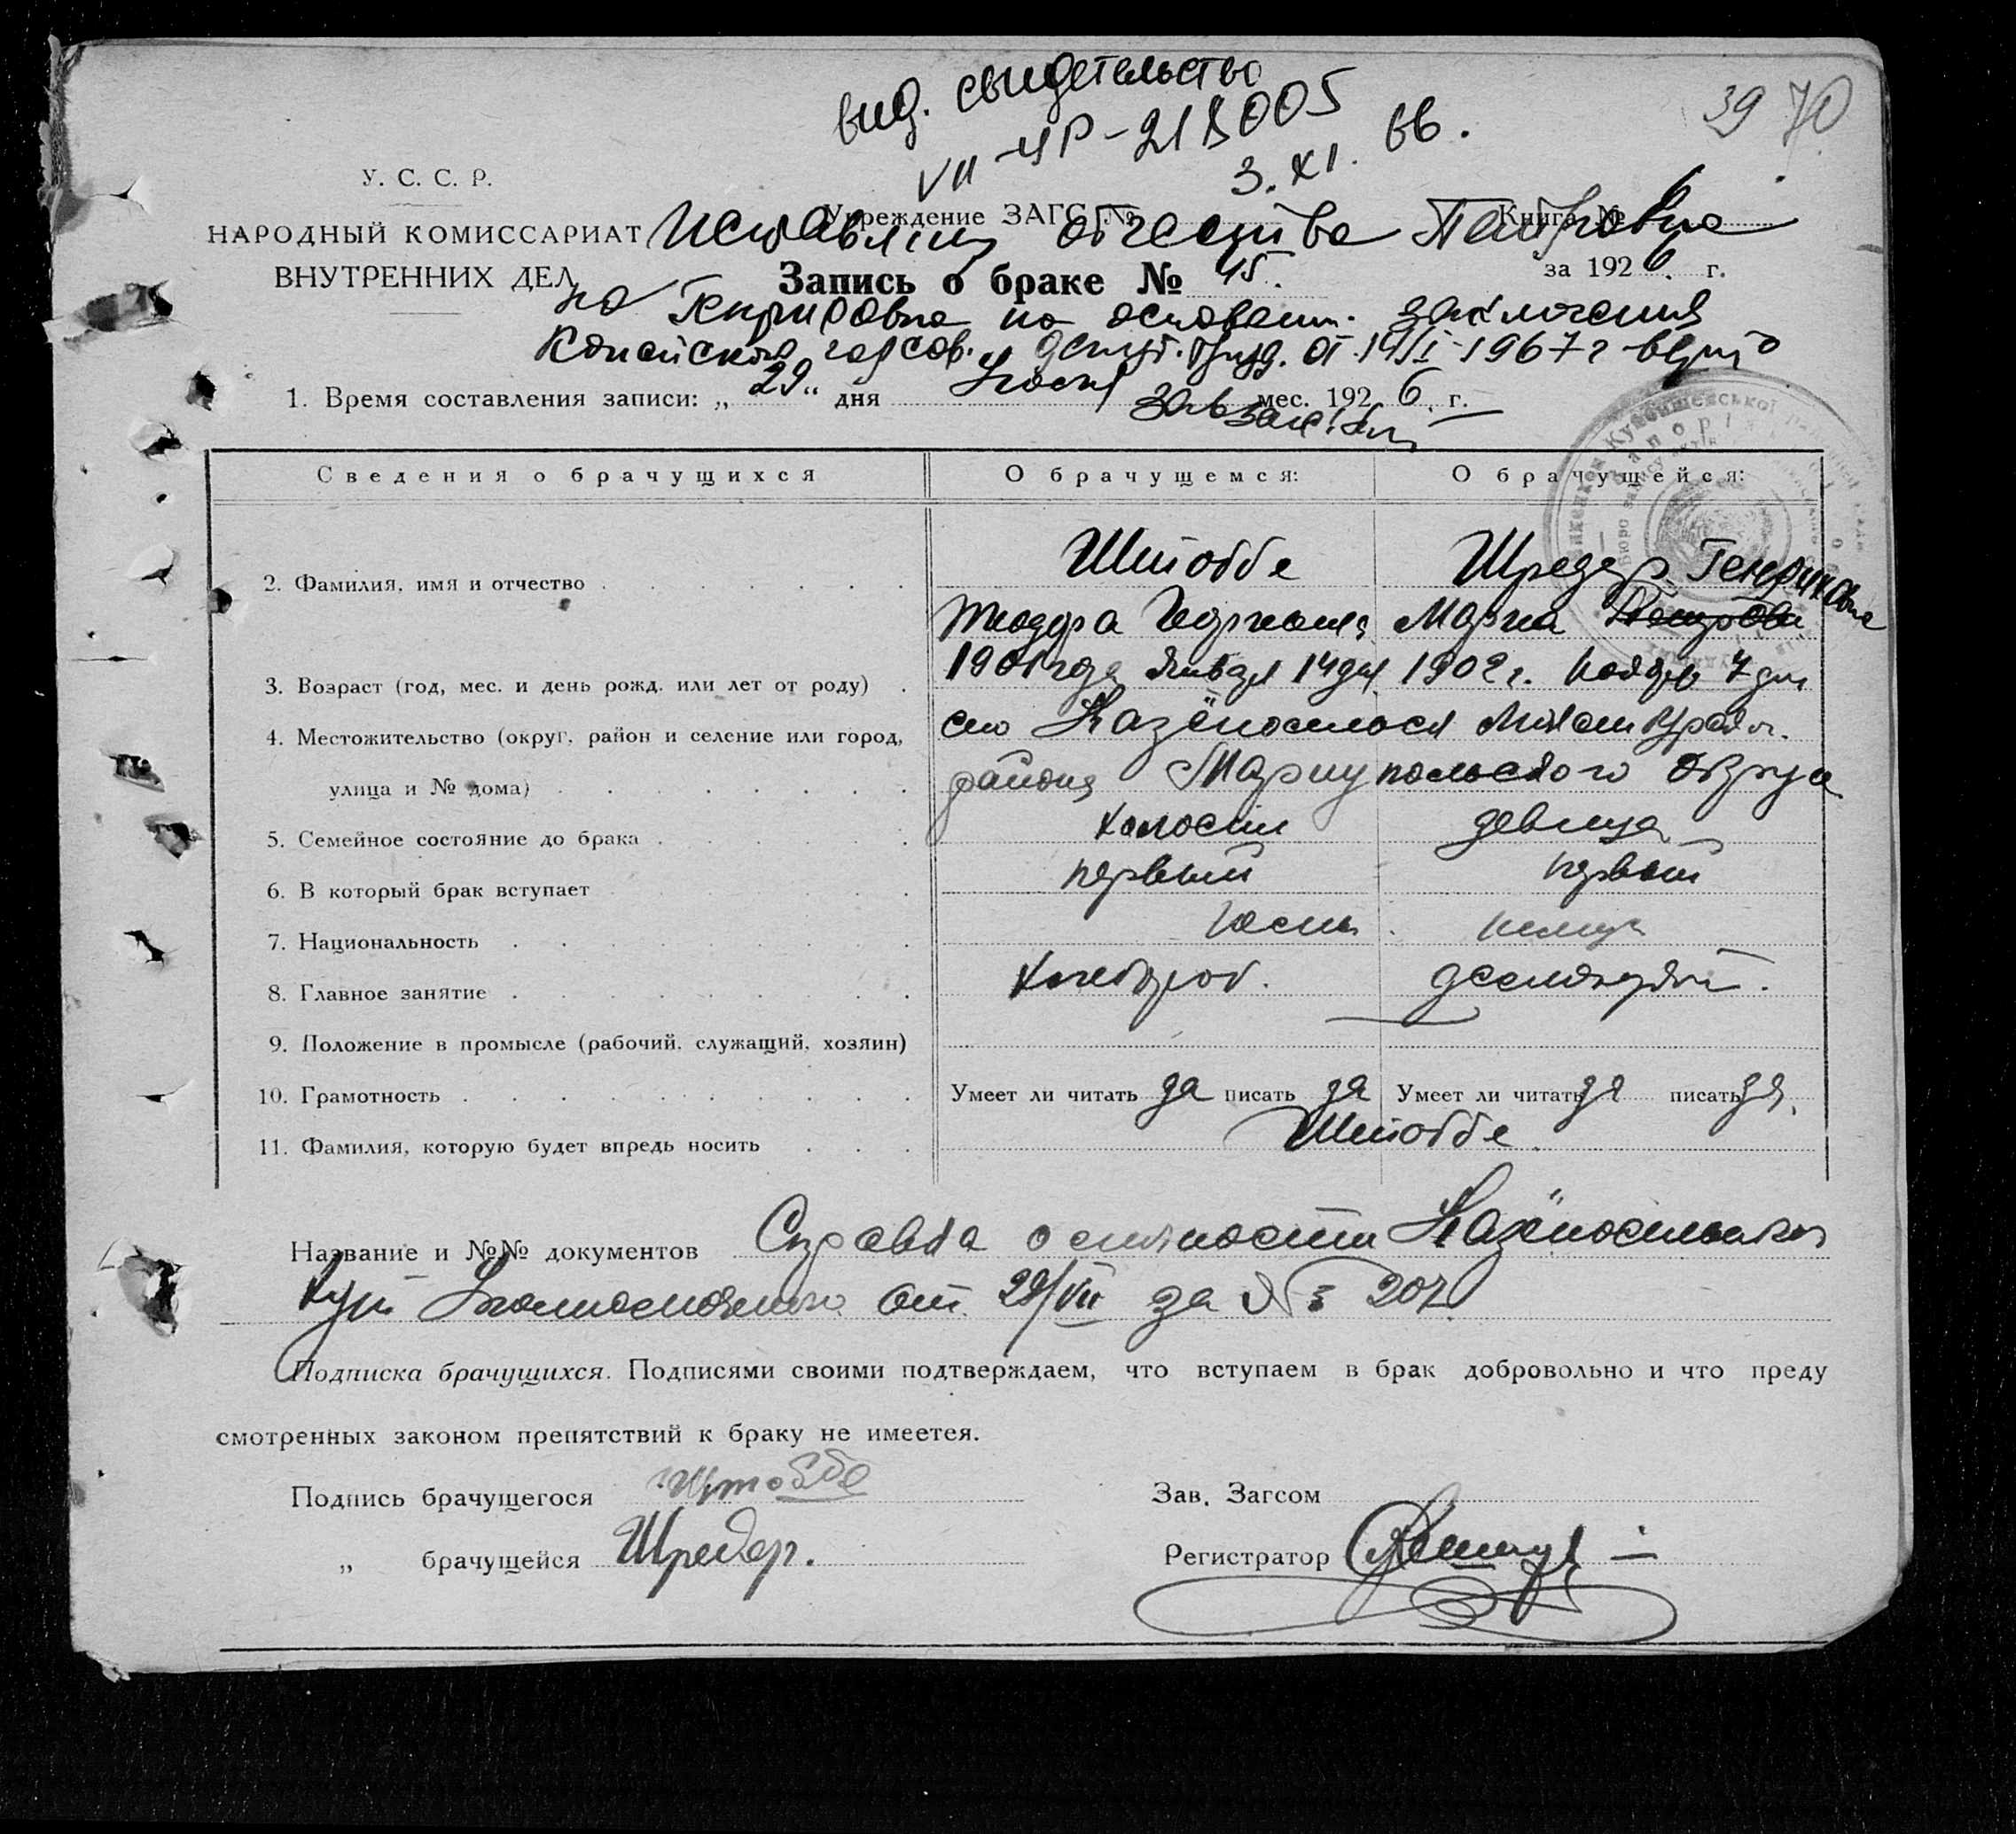 39 70
выд. свидетельство
VII-ЯР-218005
3. XI. 66.
У. С. С. Р.
НАРОДНЫЙ КОМИССАРИАТ
ВНУТРЕННИХ ДЕЛ
Учреждение ЗАГС №
Книга № 6
отчества Петровна
Запись о браке № 45.
за 1926. г.
на Генриховна на основании заключения
Копейского горсов. депут. труд. от 1967 г
1. Время составления записи: „29“ дня мес. 1926. г.
Зав загс
Сведения о брачущихся
О брачущемся:
О брачущейся:
2. Фамилия, имя и отчество
Штоббе
Шредер Генриховна
Мария Петровн
3. Возраст (год, мес. и день рожд. или лет от роду)
1901 года Января 14 дня
1902 г. Ноябр 7 дня
4. Местожительство (округ, район и селение или город,
улица и № дома)
района Мариупольского Округа
5. Семейное состояние до брака
холост
девица
6. В который брак вступает
первый
первый
7. Национальность
немец
немка
8. Главное занятие
хлебороб.
9. Положение в промысле (рабочий, служащий, хозяин)
10. Грамотность
Умеет ли читать да писать да
Умеет ли читать да писать да
11. Фамилия, которую будет впредь носить
Штоббе
Название и №№ документов Справка о личности
от 29/VII за № 207
Подписка брачущихся. Подписями своими подтверждаем, что вступаем в брак добровольно и что преду
смотренных законом препятствий к браку не имеетея.
Подпись брачущегося Штоббе
Зав. Загсом
„ брачущейся Шредер.
Регистратор